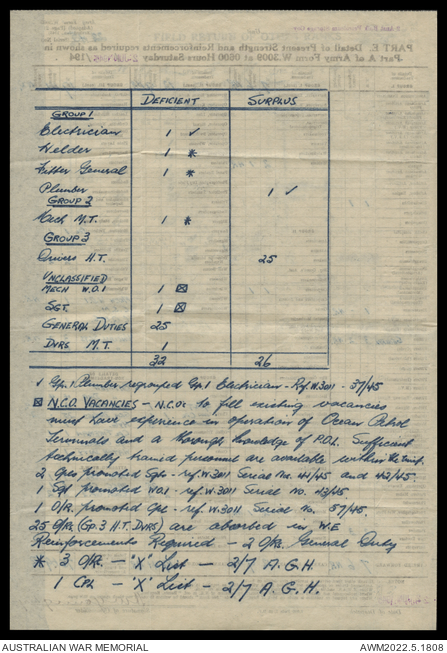 FIELD RETURN OF OTHER RANKS
PART E. Detail of Present Strength and Reinforcements required as shown in
Part A of Army Form W.3009 at 0600 Hours Saturday /194
DEFICIENT SURPLUS
GROUP 1
Electrician 1 ✓
Welder 1 *
Fitter General 1 *
Plumber 1 ✓
GROUP 2
Mech M.T. 1 *
GROUP 3
Drivers H.T. 25
UNCLASSIFIED
MECH W.O.1 1 ☒
SGT. 1 ☒
GENERAL DUTIES 25
DVRS M.T. 1
32 26
✓ Gp. 1 Plumber regrouped Gp. 1 Electrician - Ref W.3011 - 37/45
☒ N.C.O. VACANCIES - N.C.Os to fill existing vacancies
must have experience in operation of Ocean Petrol
Terminals and a thorough knowledge of P.O.L. Sufficient
technically trained personnel are available within the unit.
2 Cpls promoted Sgts - ref. W.3011 Serial No. 41/45 and 42/45.
1 Sgt promoted WO1 - ref. W.3011 Serial No. 43/45
1 O/R. promoted Cpl - ref. W.3011 Serial No. 57/45.
25 O/Rs (Gp. 3 H.T. DVRS) are absorbed in W.E
Reinforcements Required - 2 O/Rs. General Duty
* 3 O/Rs. - "X" List - 2/7 A.G.H.
1 Cpl - "X" List - 2/7 A.G.H.
AUSTRALIAN WAR MEMORIAL AWM2022.5.1808